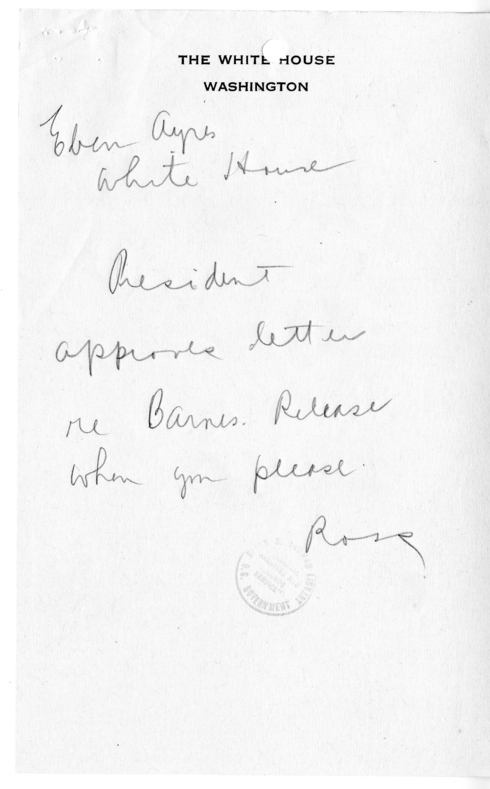 THE WHITE HOUSE
WASHINGTON
Eben Ayres
White House
President
approves letter
re Barnes. Release
when you please.
Ross
GOVERNMENT